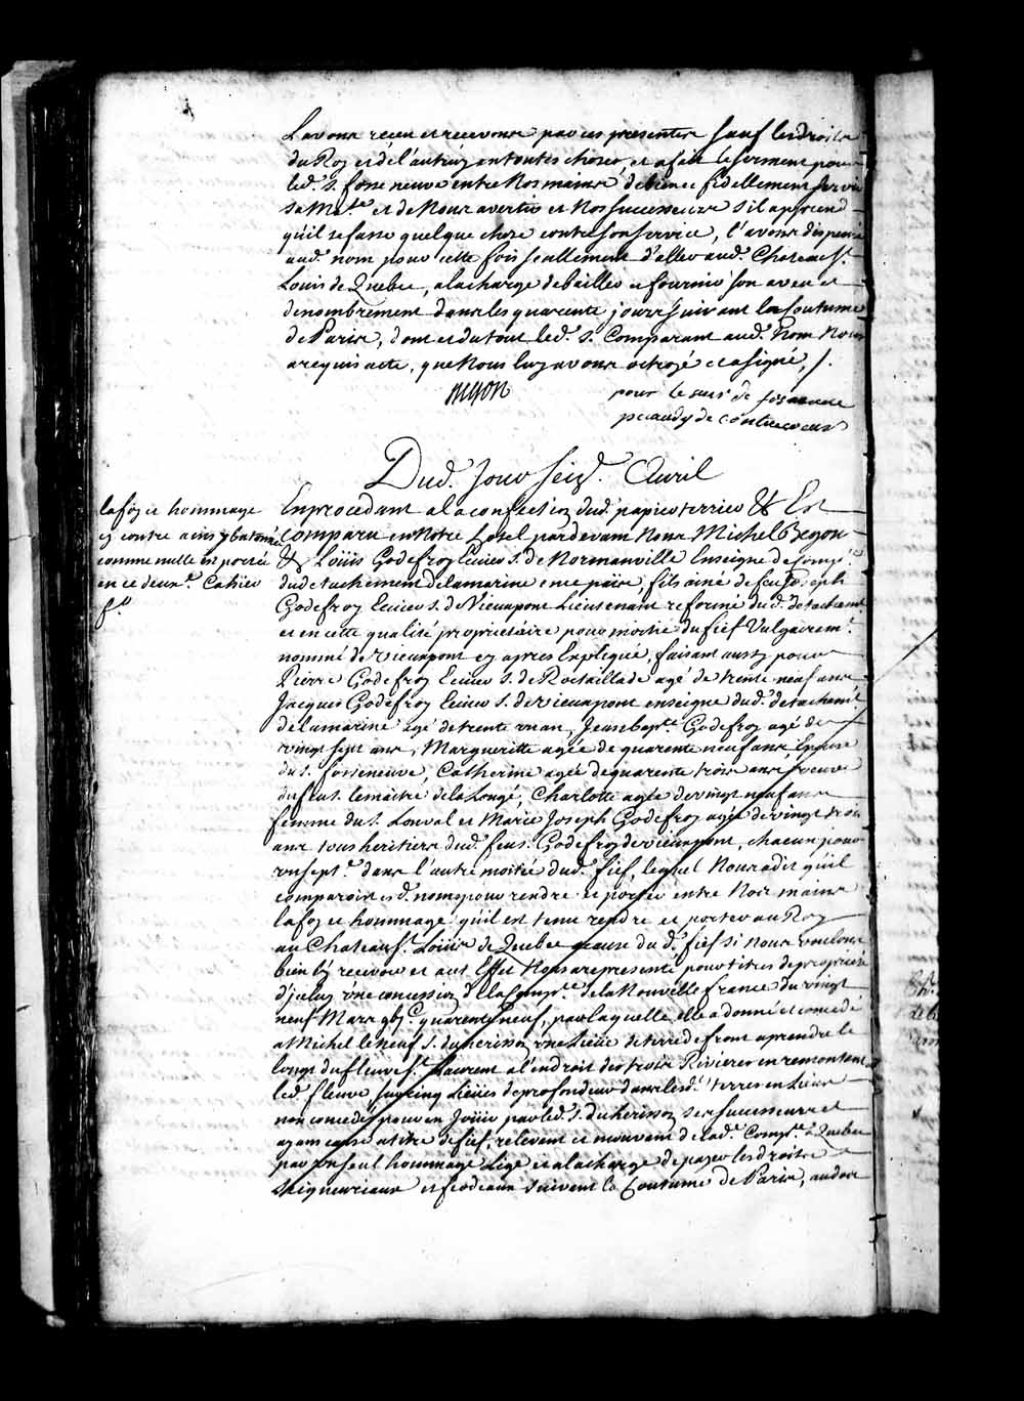 L'avons receu et recevons par ces presentes sauf les droits
du Roy et de l'autruy en toutes choses, et a fait le serment pour
led. s. fosseneuve entre Nos mains de bien et fidellement servir
sa Ma.té et de Nous avertir et Nos successeurs s'il apprend
qu'il se fasse quelque chose contre son service, l'avons dispensé
aud. nom pour cette fois seullement d'aller aud. Chateau St.
Louis de Quebec, a la charge de bailler et fournir son aveu et
denombrement dans les quarente jours suivant la Coutume
de Paris, dont et du tout led. S. Comparant aud. Nom Nous
a requis acte, que Nous luy avons octroyé et a signé, /.
Begon
pour le sieur de fosseneuve
pecaudy de contrecoeur
Dud. Jour seiz.e Avril
En procedant a la confection dud. papier terrier & Est
Comparu en Notre hotel pardevant Nous Michel Begon
& Loüis Godefroy Ecuier S. de Normanville Enseigne de Comp.e
du detachement de la marine en ce païs, fils ainé de feu Joseph
Godefroy Ecuier s. de Vieuxpont Lieutenant reformé dud. detachement
et en cette qualité proprietaire pour moitié du fief Vulgairem.t
nommé de vieuxpont cy apres Expliqué, faisant aussy pour
Pierre Godefroy Ecuier S. de Roctaillade agé de trente neuf ans
Jacques Godefroy Ecuier S. de vieuxpont enseigne dud. detachem.t
de la marine agé de trente un an, Jean bap.te Godefroy agé de
vingt sept ans, Margueritte agée de quarente neuf ans Epouse
du s. fosseneuve, Catherine agée de quarente trois ans veuve
du feu s. lemaitre de la Longé, Charlotte agée de vingt neuf ans
femme du s. Louval et Marie Joseph Godefroy agée de vingt trois
ans tous heritiers dud. feu s. Godefroy de vieuxpont, chacun pour
un sept.e dans l'autre moitié dud. fief, lequel Nous a dit qu'il
comparoit esd. noms pour rendre et porter entre Nos mains
la foy et hommage qu'il est tenu rendre et porter au Roy
au Chateau St. Loüis de Quebec a cause du d. fief si nous voulons
bien l'y recevoir et a cet Effet Nous a representé pour titres de proprieté
d'jceluy une concession de la Comp.e de la Nouvelle france du vingt
neuf Mars gbj.c quarente neuf, par laquelle elle a donné et concedé
a Michel le neuf S. du herisson une Lieüe de terre de front a prendre le
long du fleuve St. Laurent a l'endroit des trois Rivieres en remontant
led. fleuve sur cinq Lieües de profondeur dans lesd. terres en Lieux
non concedés pour en Joüir par led. S. du herisson ses successeurs et
ayans cause a titre de fief, relevent et mouvent de lad. Comp.e a Quebec
par un seul hommage Lige et a la charge de payer les droits
Seigneuriaux et feodaux suivant la Coutume de Paris, au dos
la foy et hommage
cy contre
comme nulle est portée
en ce deux.e Cahier
f.o